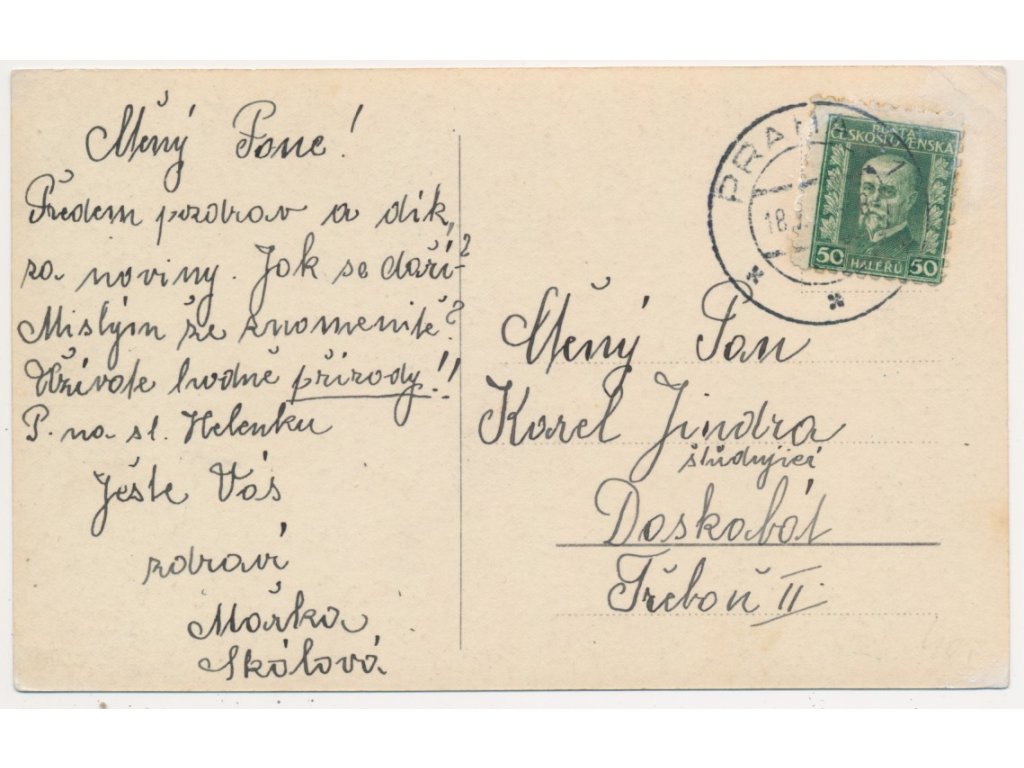 Ctěný Pane!
Předem pozdrav a dík,
za noviny. Jak se daří?
Mislým že znamenitě?
Užívate hodně přírody!!
P. na sl. Helenku
Ješte Vás
zdraví
Mařka
Skálová
PRAHA
18
POŠTA
ČESKOSLOVENSKÁ
50 HALÉŘŮ 50
Ctěný Pan
Karel Jindra
študujicí
Daskabát
Třeboň II